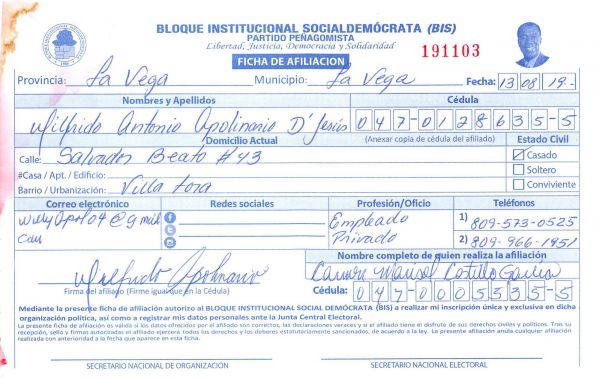 BLOQUE INSTITUCIONAL SOCIALDEMÓCRATA (BIS)
PARTIDO PEÑAGOMISTA
Libertad, Justicia, Democracia y Solidaridad
191103
FICHA DE AFILIACION
Provincia: La Vega Municipio: La Vega Fecha: 13 08 19-
Nombres y Apellidos Cédula
Wilfrido Antonio Apolinario D'Jesús 047-0128635-5
Domicilio Actual (Anexar copia de cédula del afiliado) Estado Civil
Calle: Salvador Beato #43 Casado
#Casa / Apt. / Edificio: Soltero
Barrio / Urbanización: Villa Lora Conviviente
Correo electrónico Redes sociales Profesión/Oficio Teléfonos
Willyapolo4@gmail Empleado 1) 809-573-0525
com Privado 2) 809-966-1951
Nombre completo de quien realiza la afiliación
Wilfrido Apolinario Carmen Marisol Castillo García
Firma del afiliado (Firme igual que en la Cédula) Cédula: 047-0005535-5
Mediante la presente ficha de afiliación autorizo al BLOQUE INSTITUCIONAL SOCIAL DEMÓCRATA (BIS) a realizar mi inscripción única y exclusiva en dicha
organización política, así como a registrar mis datos personales ante la Junta Central Electoral.
La presente ficha de afiliación es válida si los datos ofrecidos por el afiliado son correctos, las declaraciones veraces y si el afiliado tiene el disfrute de sus derechos civiles y políticos. Tras su
recepción, sello y firmas autorizadas el afiliado ejercerá todos los derechos y los deberes estatutariamente sancionados, de acuerdo a la ley. La presente afiliación anula cualquier afiliación
realizada con anterioridad a la fecha que aparece en esta ficha.
SECRETARIO NACIONAL DE ORGANIZACIÓN SECRETARIO NACIONAL ELECTORAL